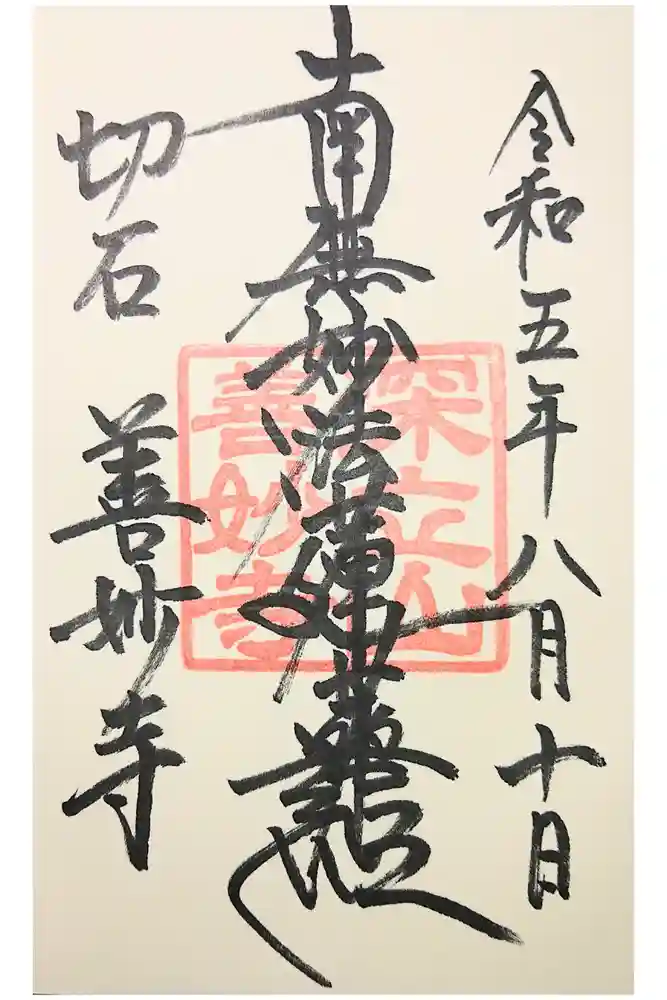 令和五年八月十日
南無妙法蓮華経
深立山
善妙寺
切石 善妙寺